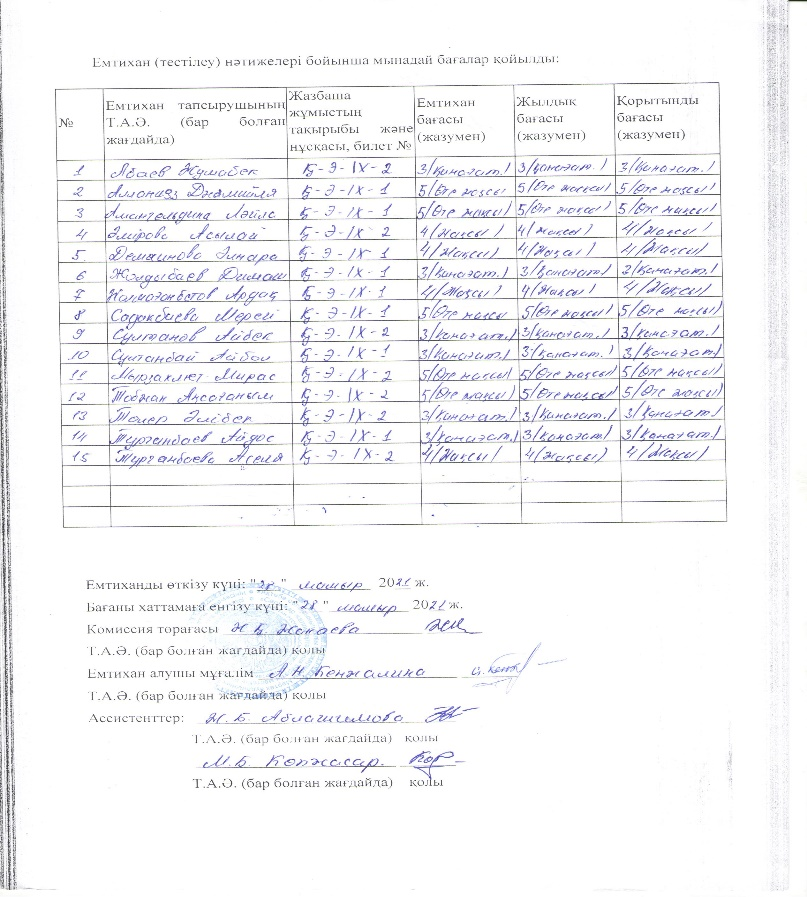 Емтихан (тестілеу) нәтижелері бойынша мынадай бағалар қойылды:
№ Емтихан тапсырушының Т.А.Ә. (бар болған жағдайда) Жазбаша жұмыстың тақырыбы және нұсқасы, билет № Емтихан бағасы (жазумен) Жылдық бағасы (жазумен) Қорытынды бағасы (жазумен)
1 Абаев Жұмабек Қ-Э-IX-2 3/қанағат./ 3/қанағат./ 3/қанағат./
2 Қ-Э-IX-1 5/Өте жақсы 5/Өте жақсы/ 5/Өте жақсы/
3 Амангельдина Ләйла Қ-Э-IX-1 5/Өте жақсы/ 5/Өте жақсы/ 5/Өте жақсы/
4 Әмірова Асылай Қ-Э-IX 2 4/Жақсы/ 4/Жақсы/ 4/Жақсы/
5. Элнара Қ-Э-IX 1 4/Жақсы/ 4/Жақсы/ 4/Жақсы/
6 Жолдыбаев Димаш Қ-Э-IX-1 3/Қанағат./ 3/қанағат/ 2/қанағат./
7 Ардақ Қ-Э-IX-1 4/Жақсы/ 4/Жақсы/ 4/Жақсы/
8 Садакбаева Мерей Қ-Э-IX-1 5/Өте жақсы 5/Өте жақсы/ 5/Өте жақсы/
9 Султанов Айбек Қ-Э-IX-2 3/қанағат./ 3/қанағат./ 3/қанағат./
10 Султанбай Айбол Қ-Э-IX-1 3/қанағат/ 3/қанағат./ 3/қанағат/
11 Мырзахмет Мирас Қ-Э-IX-2 5/Өте жақсы/ 5/Өте жақсы/ 5/Өте жақсы/
12 Қ-Э-IX-2 5/Өте жақсы/ 5/Өте жақсы/ 5/Өте жақсы/
13 Әлібек Қ-Э-IX-2 3/қанағат./ 3/қанағат./ 3/қанағат./
14 Турганбаев Айдос Қ-Э-IX-1 3/қанағат./ 3/қанағат/ 3/қанағат./
15 Турганбаева Аселя Қ-Э-IX-2 4/Жақсы/ 4/Жақсы/ 4/Жақсы/
Емтиханды өткізу күні: "28" мамыр 2021 ж.
Бағаны хаттамаға енгізу күні: "28" мамыр 2021 ж.
Комиссия төрағасы Ж Б. Жакаева
Т.А.Ә. (бар болған жағдайда) қолы
Емтихан алушы мұғалім А.Н. Кенжалина
Т.А.Ә. (бар болған жағдайда) қолы
Ассистенттер: Ж. Б. Аблагимова
Т.А.Ә. (бар болған жағдайда) қолы
М.Б Көпжасар.
Т.А.Ә. (бар болған жағдайда) қолы